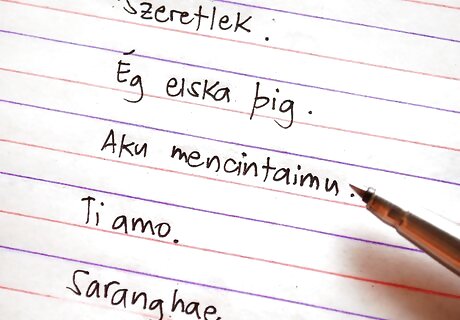 szeretlek.
Ég elska þig.
Aku mencintaimu.
Ti amo.
Saranghae.